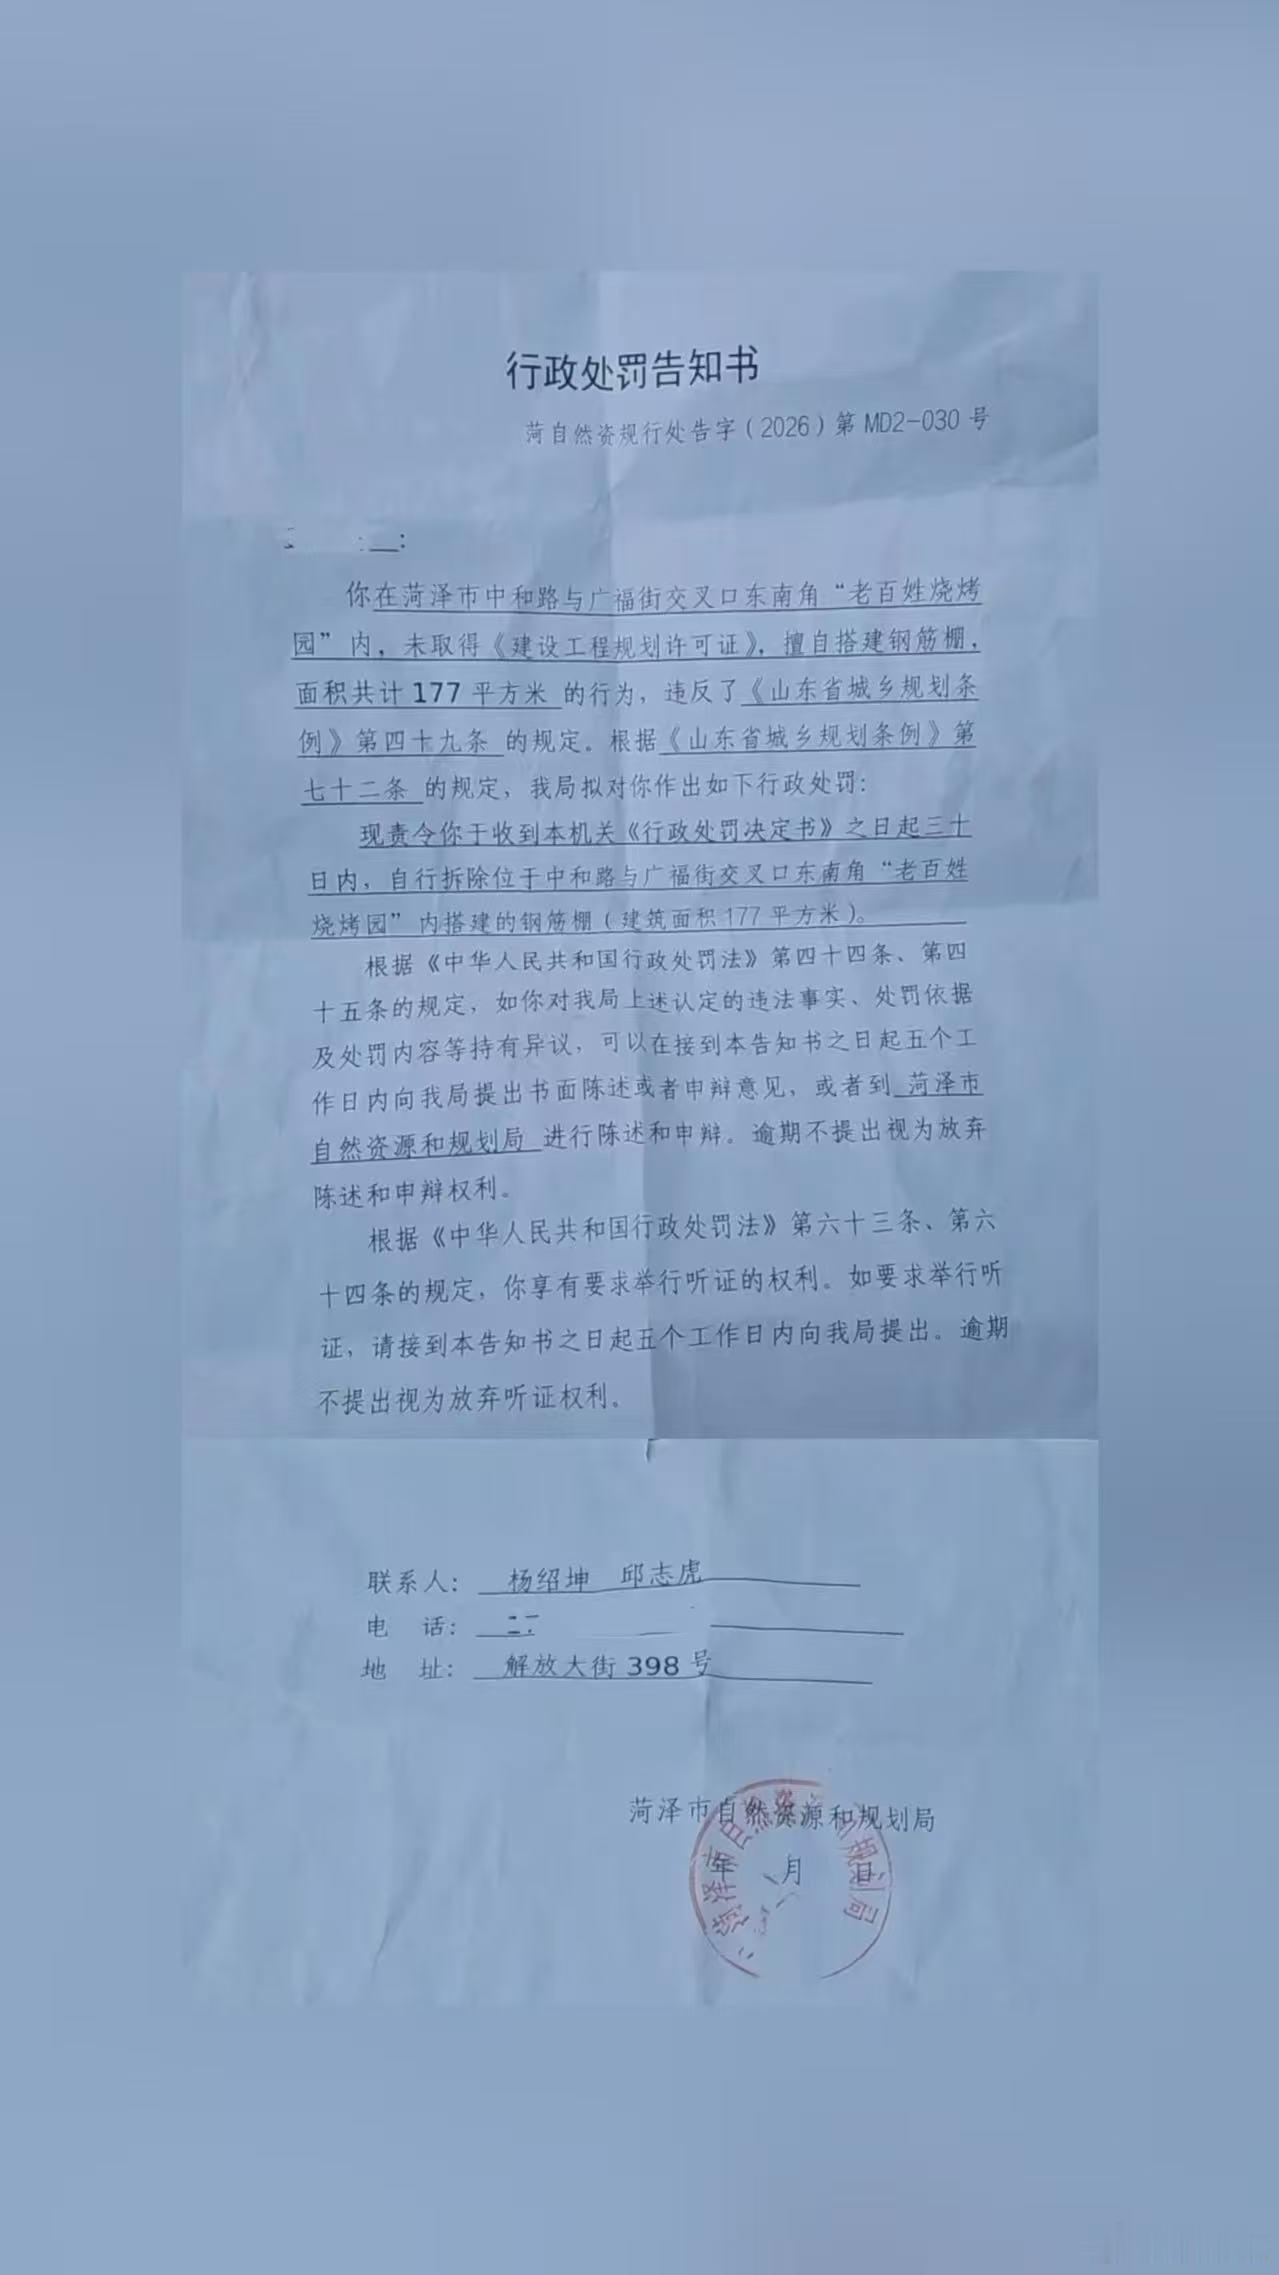 行政处罚告知书
菏自然资规行处告字（2026）第 MD2-030 号
：
你在菏泽市中和路与广福街交叉口东南角“老百姓烧烤
园”内，未取得《建设工程规划许可证》，擅自搭建钢筋棚，
面积共计 177 平方米 的行为，违反了《山东省城乡规划条
例》第四十九条 的规定。根据《山东省城乡规划条例》第
七十二条 的规定，我局拟对你作出如下行政处罚：
现责令你于收到本机关《行政处罚决定书》之日起三十
日内，自行拆除位于中和路与广福街交叉口东南角“老百姓
烧烤园”内搭建的钢筋棚（建筑面积177 平方米）。
根据《中华人民共和国行政处罚法》第四十四条、第四
十五条的规定，如你对我局上述认定的违法事实、处罚依据
及处罚内容等持有异议，可以在接到本告知书之日起五个工
作日内向我局提出书面陈述或者申辩意见，或者到 菏泽市
自然资源和规划局 进行陈述和申辩。逾期不提出视为放弃
陈述和申辩权利。
根据《中华人民共和国行政处罚法》第六十三条、第六
十四条的规定，你享有要求举行听证的权利。如要求举行听
证，请接到本告知书之日起五个工作日内向我局提出。逾期
不提出视为放弃听证权利。
联系人： 杨绍坤 邱志虎
电 话：
地 址： 解放大街 398 号
菏泽市自然资源和规划局
年 月 日